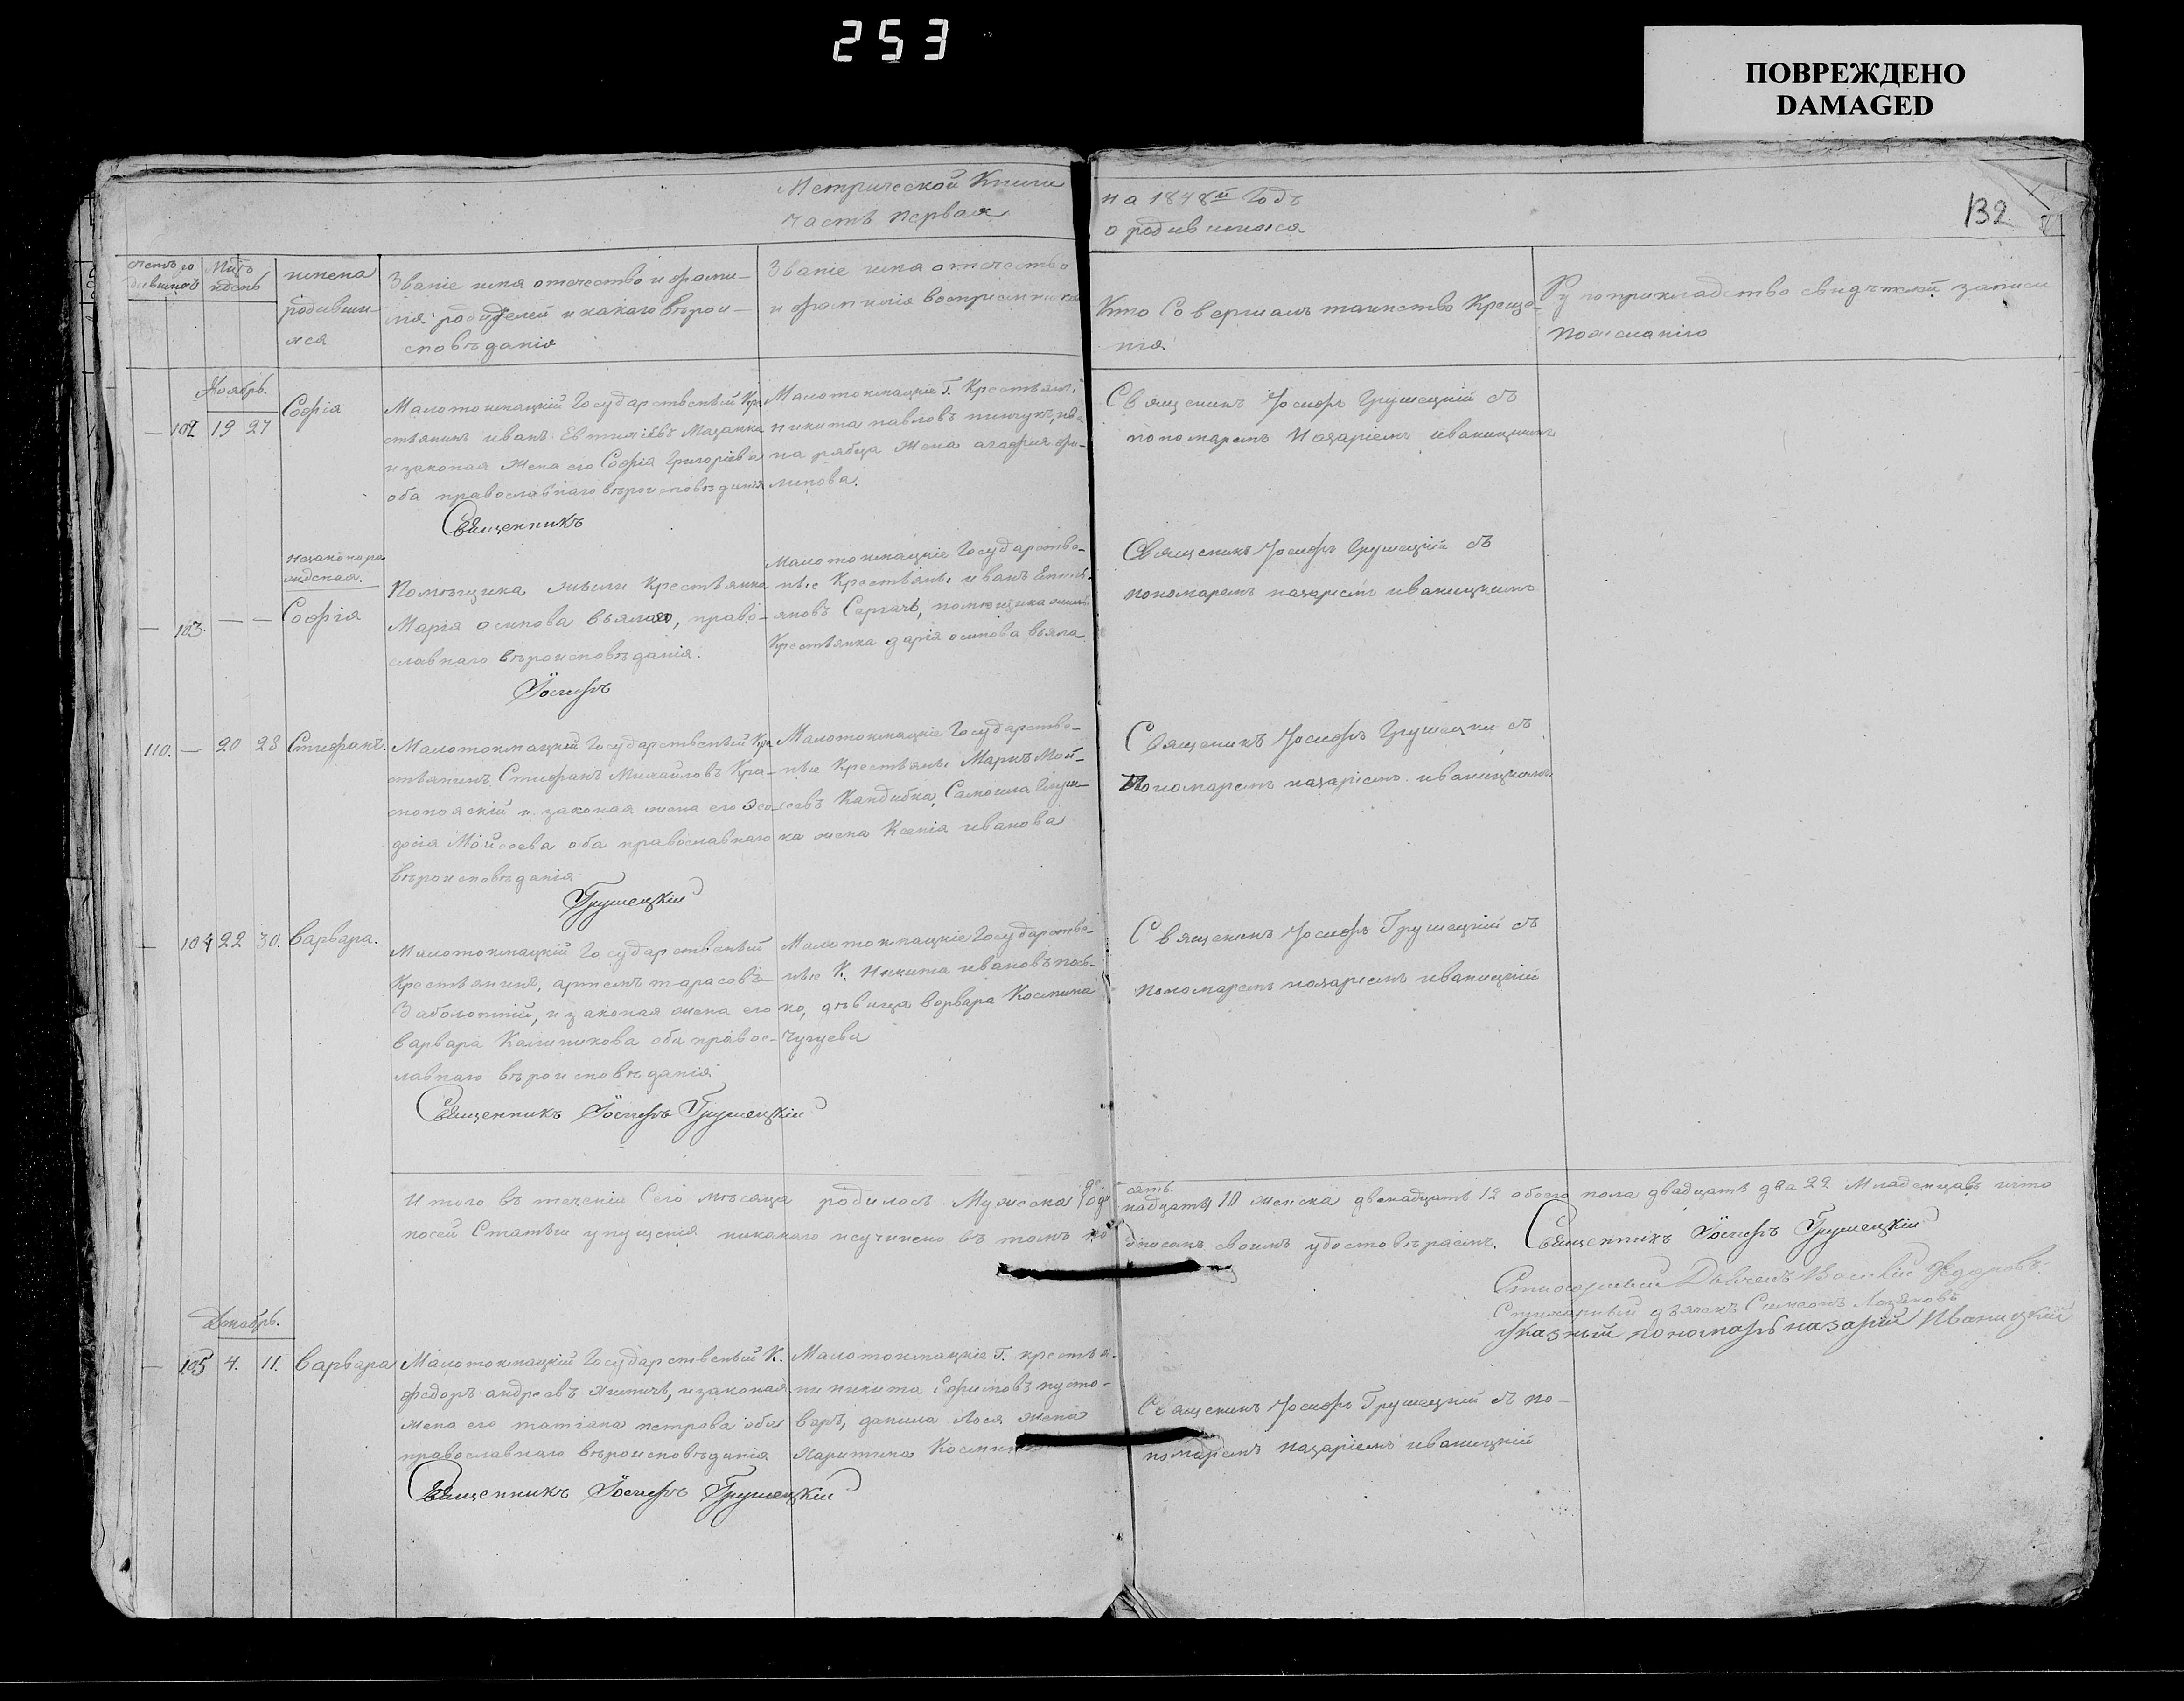 253
ПОВРЕЖДЕНО
DAMAGED
132
Метрической Книги на 1848й Годъ
часть первая о родившихся
Счетъ родившихся
Мцъ и день
имена родивши-
хся
Званіе имя отечество и фами-
лія родителей и какаго вѣрои-
сповѣданія
Званіе имя отечество
и фамилія воспріемников
Кто Совершалъ таинство Креще-
нія
Рукоприкладство свидѣтелей записи
по желанію
Ноябрь.
102 19 27 Софія
Малотокмацкій Государственый Кре-
стьянинъ иванъ Евтихіевъ Мазанка
и законая жена его Софія Григоріева
оба православнаго вѣроисповѣданія
Малотокмацкіе Г. Крестьяне
никита павловъ пинчукъ, ива-
на рябца жена агафия фи-
липова.
Священикъ Іосифъ Грушецкій съ
пономаремъ Назаріемъ иваницкимъ
Священникъ
незаконоро
жденая.
103. — — Софія
Помѣщика жебели Крестьянка
Марія осипова вялая, право-
славнаго вѣроисповѣданія.
Малотокмацкіе Государстве-
ные Крестьяне иванъ
яновъ Сергачъ, помющика
Крестьянка дарія осипова вяла
Священикъ Іосифъ Грушецкій съ
пономаремъ назаріемъ иваницкимъ
Іосифъ
110. — 20 28 Стефанъ.
Малотокмацкій Государственый Кре-
стьянинъ Стефанъ Михайловъ Кра-
снопояскій и законая жена его Ѳео-
досія Мойсеева оба православнаго
вѣроисповѣданія
Малотокмацкіе Государстве-
ные Крестьяне Маркъ Мой-
сеевъ Кандибка, Самоила Глуш-
ка жена Ксенія иванова
Священикъ Іосифъ Грушецки съ
Пономаремъ назаріемъ иваницкимъ
Грушецкій
104 22 30. варвара.
Малотокмацкій Государственый
Крестьянинъ, артемъ тарасовъ
Заболотній, и законая жена его
варвара Калиникова оба правос-
лавнаго вѣроисповѣданія
Малотокмацкіе Государстве-
ные К. Никита ивановъ
ко, дѣвица варвара Космина
Чугуева
Священикъ Іосифъ Грушецкій съ
пономаремъ назаріемъ иваницкій
Священникъ Іосифъ Грушецкій
Итого въ теченіи Сего мѣсяца родилось Мужеска
10 женска двенадцать 12 обоего пола двадцать два 22 Младенцавъ что
посей Статьи упущенія никакаго неучинено въ томъ по
дписомъ своимъ удостовѣраемъ. Священникъ Іосифъ Грушецкій
Василій Федоровъ.
дьячекъ Симеонъ
Указный пономарь назарій Иваницкій
Декабрь.
105 4. 11. варвара
Малотокмацкій Государственый К.
федоръ андреевъ и законая
жена его татіана петрова оба
православнаго вѣроисповѣданія
Малотокмацкіе Г. крестья-
ни никита Ефимовъ пусто-
варъ, данила Лося жена
Харитина Косми
Священикъ Іосифъ Грушецкій съ по-
номаремъ назаріемъ иваницкій
Священникъ Іосифъ Грушецкій